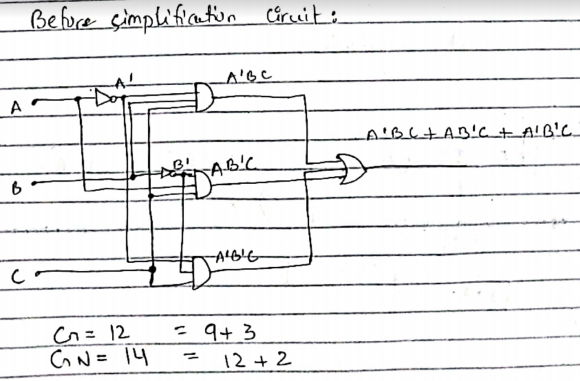 Before simplification Circuit:
A'
A'BC
A
A'BC + AB'C + A'B'C
B'
AB'C
B
A'B'C
C
G = 12 = 9+3
GN = 14 = 12+2